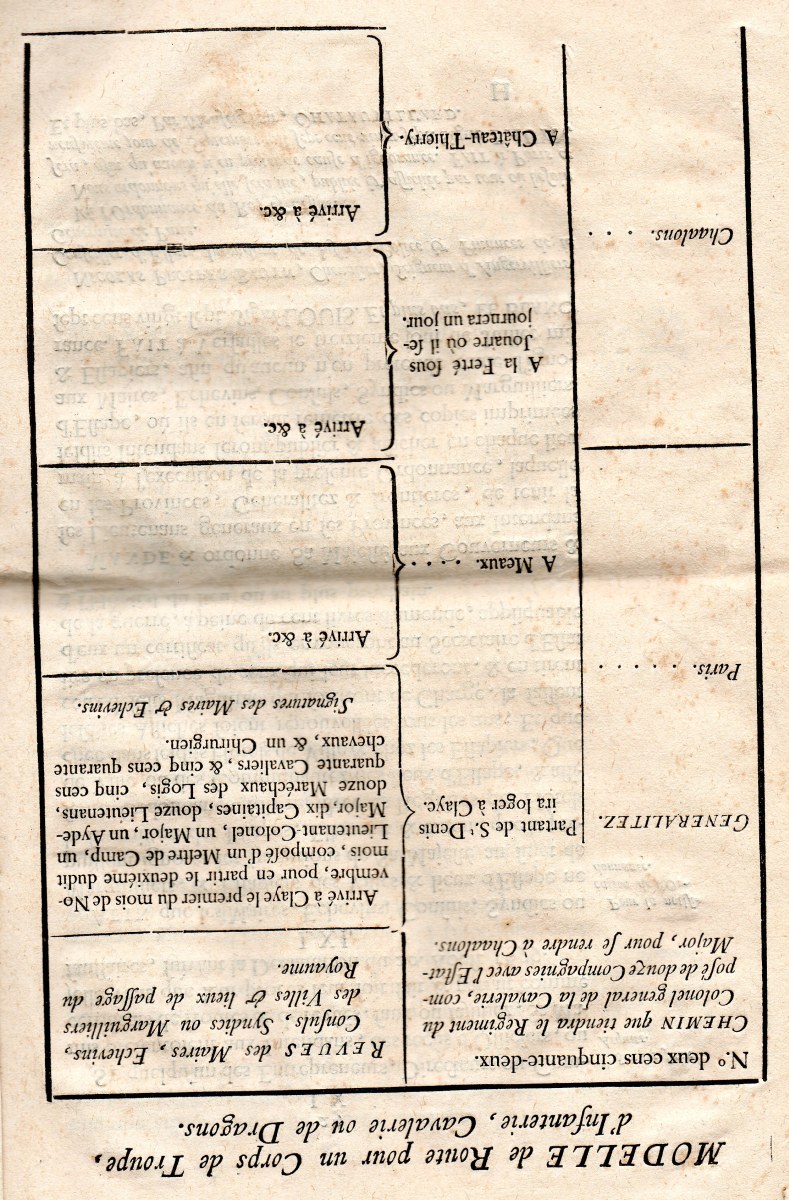 MODELLE de Route pour un Corps de Troupe,
d'Infanterie, Cavalerie ou de Dragons.
N.º deux cens cinquante-deux.
CHEMIN que tiendra le Regiment du
Colonel general de la Cavalerie, com-
poſé de douze Compagnies avec l'Eſtat-
Major, pour ſe rendre à Chaalons.
REVUES des Maires, Echevins,
Conſuls, Syndics ou Marguilliers
des Villes & lieux de paſſage du
Royaume.
GENERALITEZ.
Partant de S.ᵗ Denis
ira loger à Claye.
Arrivé à Claye le premier du mois de No-
vembre, pour en partir le deuxiéme dudit
mois, compoſé d'un Meſtre de Camp, un
Lieutenant-Colonel, un Major, un Ayde-
Major, dix Capitaines, douze Lieutenans,
douze Maréchaux des Logis, cinq cens
quarante Cavaliers, & cinq cens quarante
chevaux, & un Chirurgien.
Signatures des Maires & Echevins.
Paris. . . . . .
A Meaux. . . . .
Arrivé à &c.
A la Ferté ſous
Jouarre où il ſé-
journera un jour.
Arrivé à &c.
Chaalons. . . . .
A Château-Thierry.
Arrivé à &c.